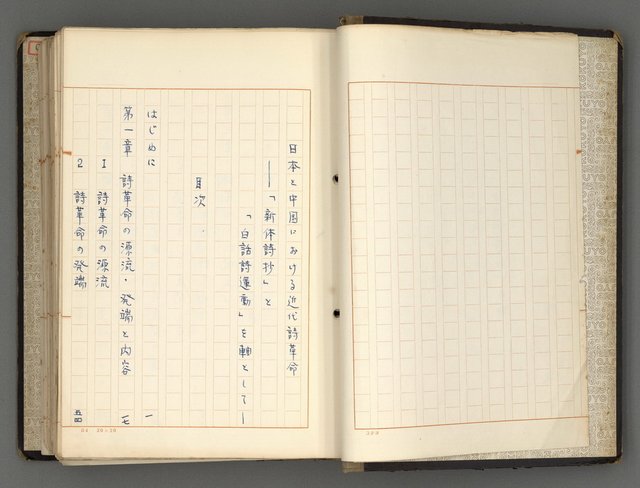 日本と中国における近代詩革命
――「新体詩抄」と
「白話詩運動」を軸として―
目次
はじめに 一
第一章 詩革命の源流・発端と内容 一七
1 詩革命の源流
2 詩革命の発端 五四
20×20
KOKUYO